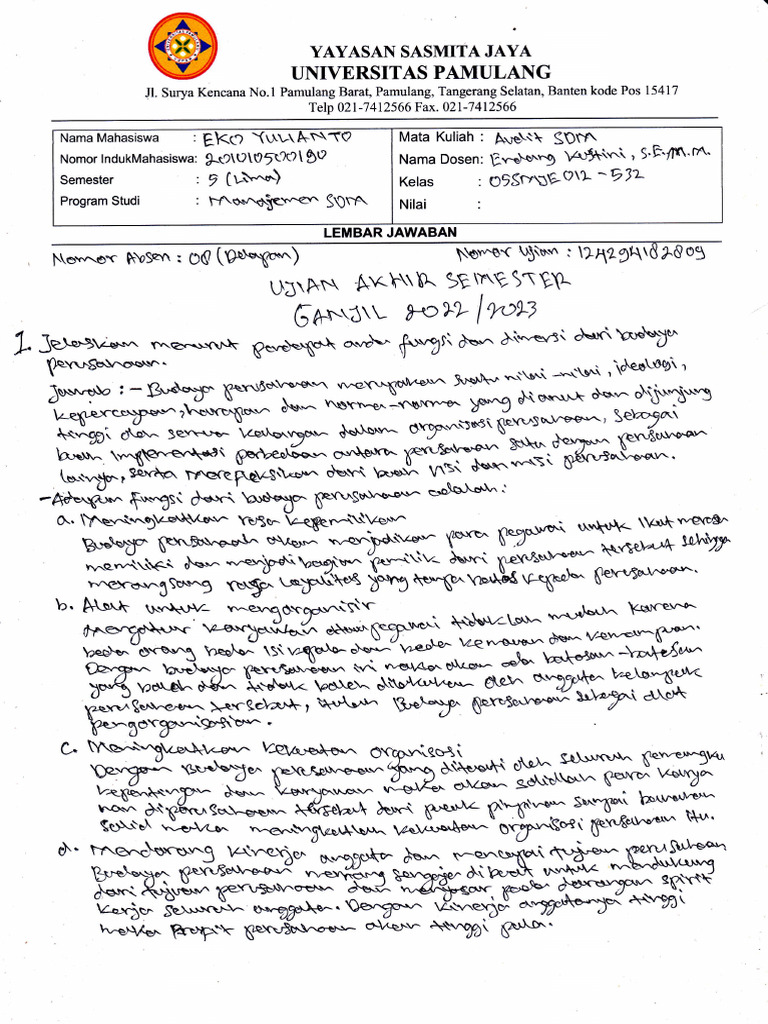 YAYASAN SASMITA JAYA
UNIVERSITAS PAMULANG
Jl. Surya Kencana No.1 Pamulang Barat, Pamulang, Tangerang Selatan, Banten kode Pos 15417
Telp 021-7412566 Fax. 021-7412566
Nama Mahasiswa : EKO YULIANTO
Nomor IndukMahasiswa: 201010500190
Semester : 5 (Lima)
Program Studi : Manajemen SDM
Mata Kuliah : Audit SDM
Nama Dosen: Endang Kustini, S.E,M.M.
Kelas : 05SMJE012 - S32
Nilai :
LEMBAR JAWABAN
Nomor Absen : 08 (Delapan)
Nomor Ujian : 124294182809
UJIAN AKHIR SEMESTER
GANJIL 2022/2023
1. Jelaskan menurut pendapat anda fungsi dan dimensi dari budaya
perusahaan.
Jawab : - Budaya perusahaan merupakan suatu nilai-nilai, ideologi,
kepercayaan, harapan dan norma-norma yang dianut dan dijunjung
tinggi oleh semua kalangan dalam organisasi perusahaan, sebagai
buah implementasi perbedaan antara perusahaan satu dengan perusahaan
lainya, serta merefleksikan dari buah visi dan misi perusahaan.
- Adapun fungsi dari budaya perusahaan adalah :
a. Meningkatkan rasa kepemilikan
Budaya perusahaan akan menjadikan para pegawai untuk ikut merasa
memiliki dan menjadi bagian pemilik dari perusahaan tersebut sehingga
merangsang rasa loyalitas yang tanpa batas kepada perusahaan.
b. Alat untuk mengorganisir
Mengatur karyawan atau pegawai tidaklah mudah karena
beda orang beda isi kepala dan beda kemauan dan kemampuan.
Dengan budaya perusahaan ini maka akan ada batasan-batasan
yang boleh dan tidak boleh dilakukan oleh anggota kelompok
perusahaan tersebut, itulah Budaya perusahaan sebagai alat
pengorganisasian.
c. Meningkatkan kekuatan organisasi
Dengan Budaya perusahaan yang ditaati oleh seluruh pemangku
kepentingan dan karyawan maka akan solidlah para karya
wan diperusahaan tersebut dari pucuk pinpinan sampai bawahan
solid maka meningkatlah kekuatan organisasi perusahaan itu.
d. Mendorong kinerja anggota dan mencapai tujuan perusahaan
Budaya perusahaan memang sengaja dibuat untuk mendukung
dari tujuan perusahaan dan menyasar pada dorongan spirit
kerja seluruh anggota. Dengan kinerja anggotanya tinggi
maka Profit perusahaan akan tinggi pula.